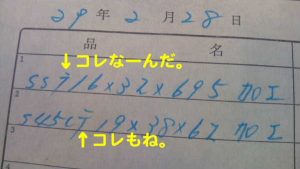 29年2月28日
品名
1
↓コレなーんだ。
SS〒16×32×695 加工
2
S45C〒19×38×62 加工
3
↑コレもね。
4